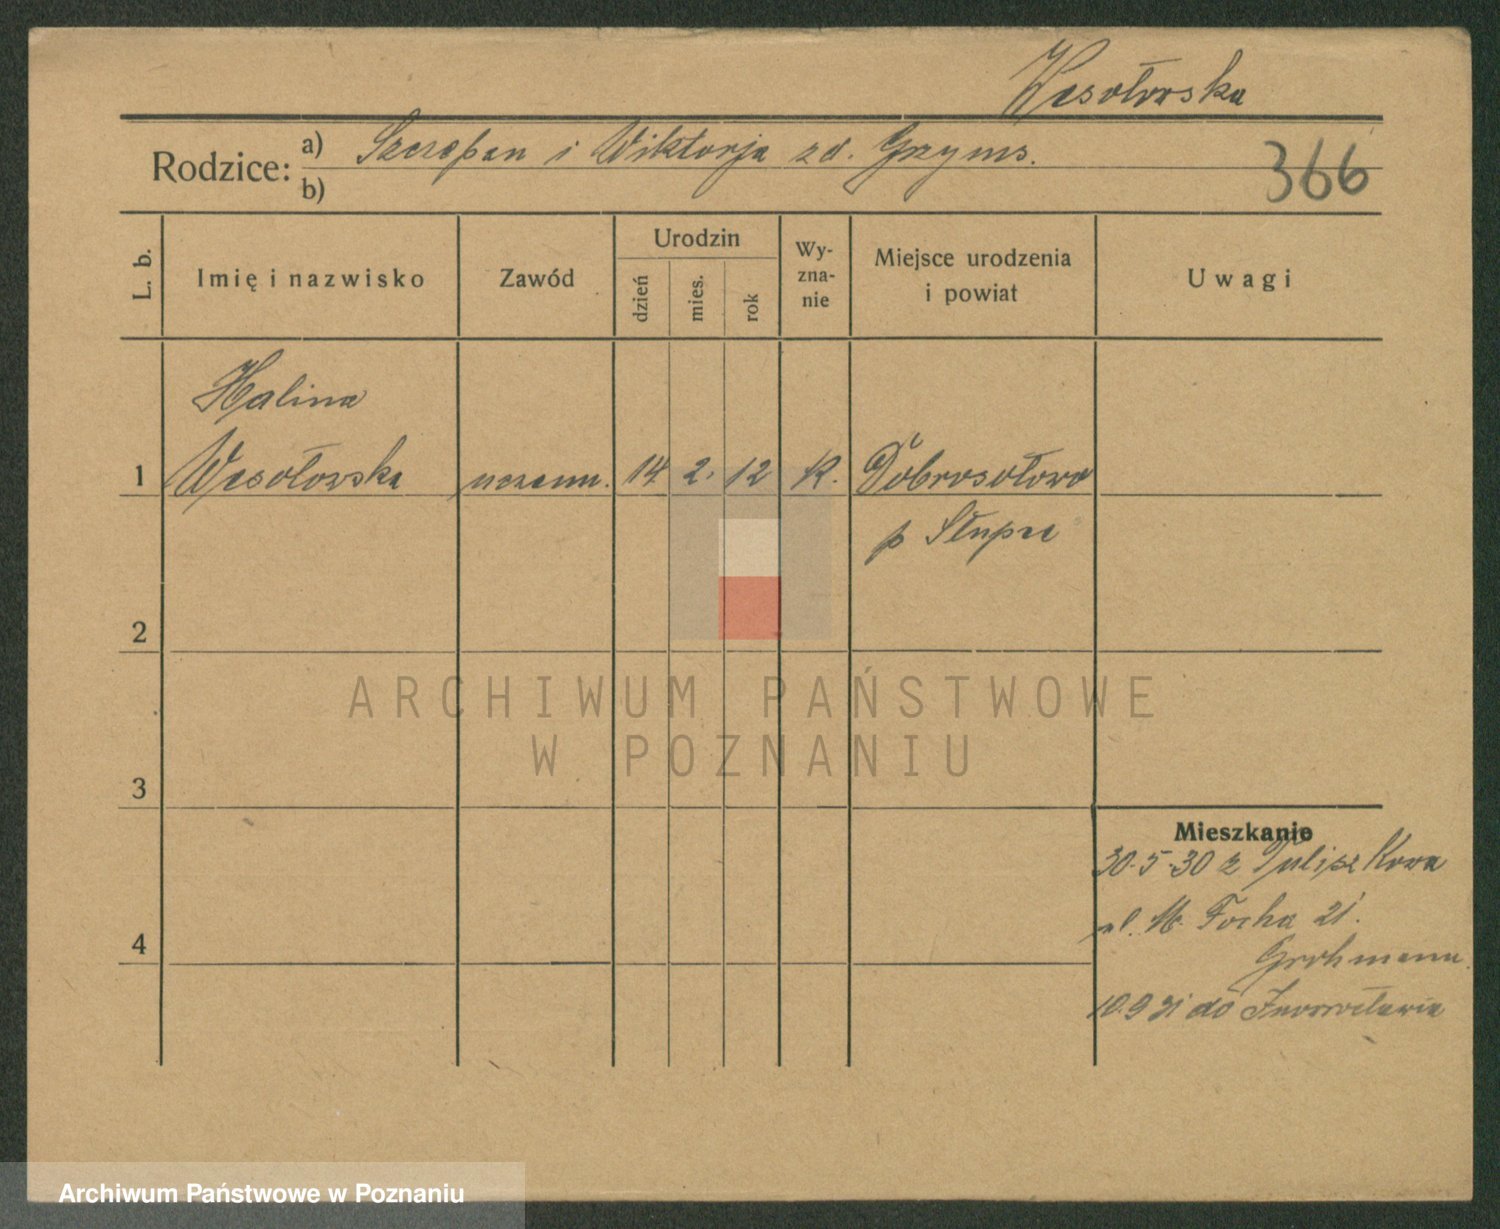 Wesołowska
Rodzice: a) Szczepan i Wiktorja zd. Grzyms.
b)
366
L. b.
Imię i nazwisko
Zawód
Urodzin
dzień
mies.
rok
Wy-
zna-
nie
Miejsce urodzenia
i powiat
Uwagi
Halina
1 Wesołowska uczenn. 14 2. 12 R. Dobrosołowo
p Słupca
2
3
4
Mieszkanie
30.5.30 z Tuliszkowa
ul. M. Focha 21.
Grohmann.
10.9 31 do Inowrocławia
ARCHIWUM PAŃSTWOWE
W POZNANIU
Archiwum Państwowe w Poznaniu